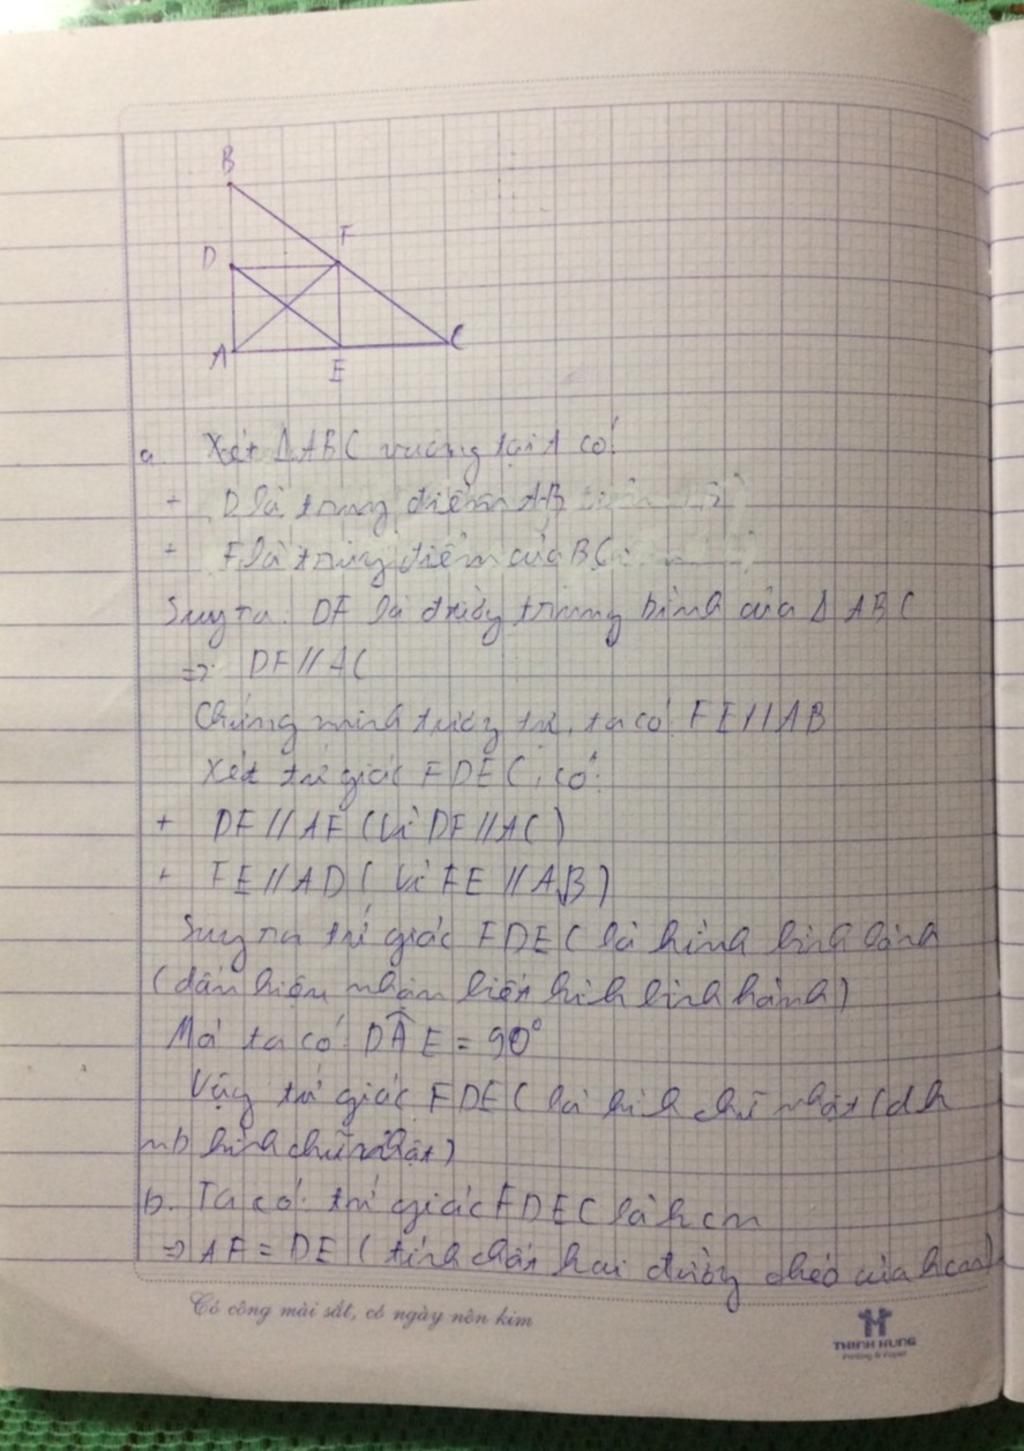 B
D
F
A
E
C
a. Xét ΔABC vuông tại A có:
+ D là trung điểm AB
+ F là trung điểm của BC
Suy ra: DF là đường trung bình của Δ ABC
=> DF//AC
Chứng minh tương tự, ta có: FE//AB
Xét tứ giác FDEC, có:
+ DF//AE (Vì DF//AC)
+ FE//AD (Vì FE//AB)
Suy ra tứ giác FDEC là hình bình hành
(dấu hiệu nhận biết hình bình hành)
Mà ta có: DÂE = 90°
Vậy tứ giác FDEC là hình chữ nhật (dh
nb hình chữ nhật)
b. Ta có: tứ giác FDEC là hcn
=> AF = DE (tính chất hai đường chéo của hcn)
Có công mài sắt, có ngày nên kim
THINH HUNG
Printing & Paper